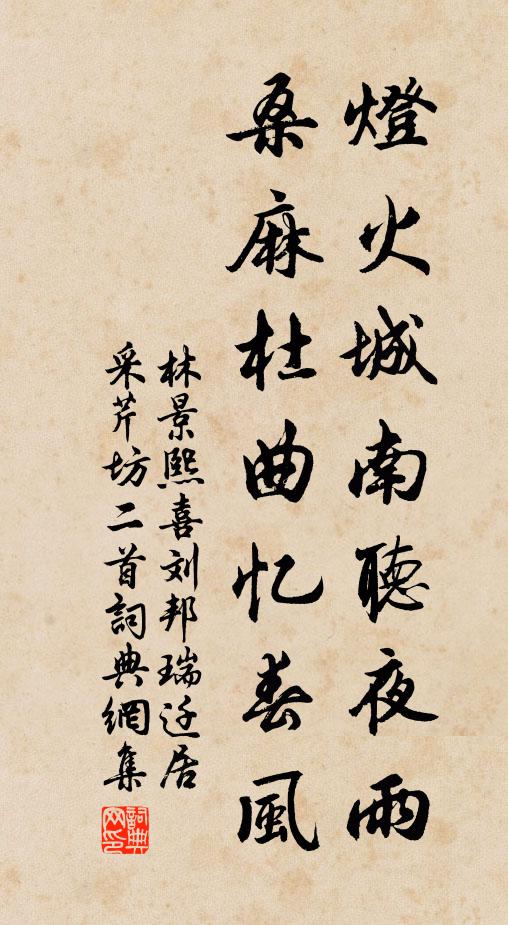 燈火城南聽夜雨
桑麻杜曲忆春風
林景熙喜刘邦瑞迁居
采芹坊二首詞典網集
詞典网印